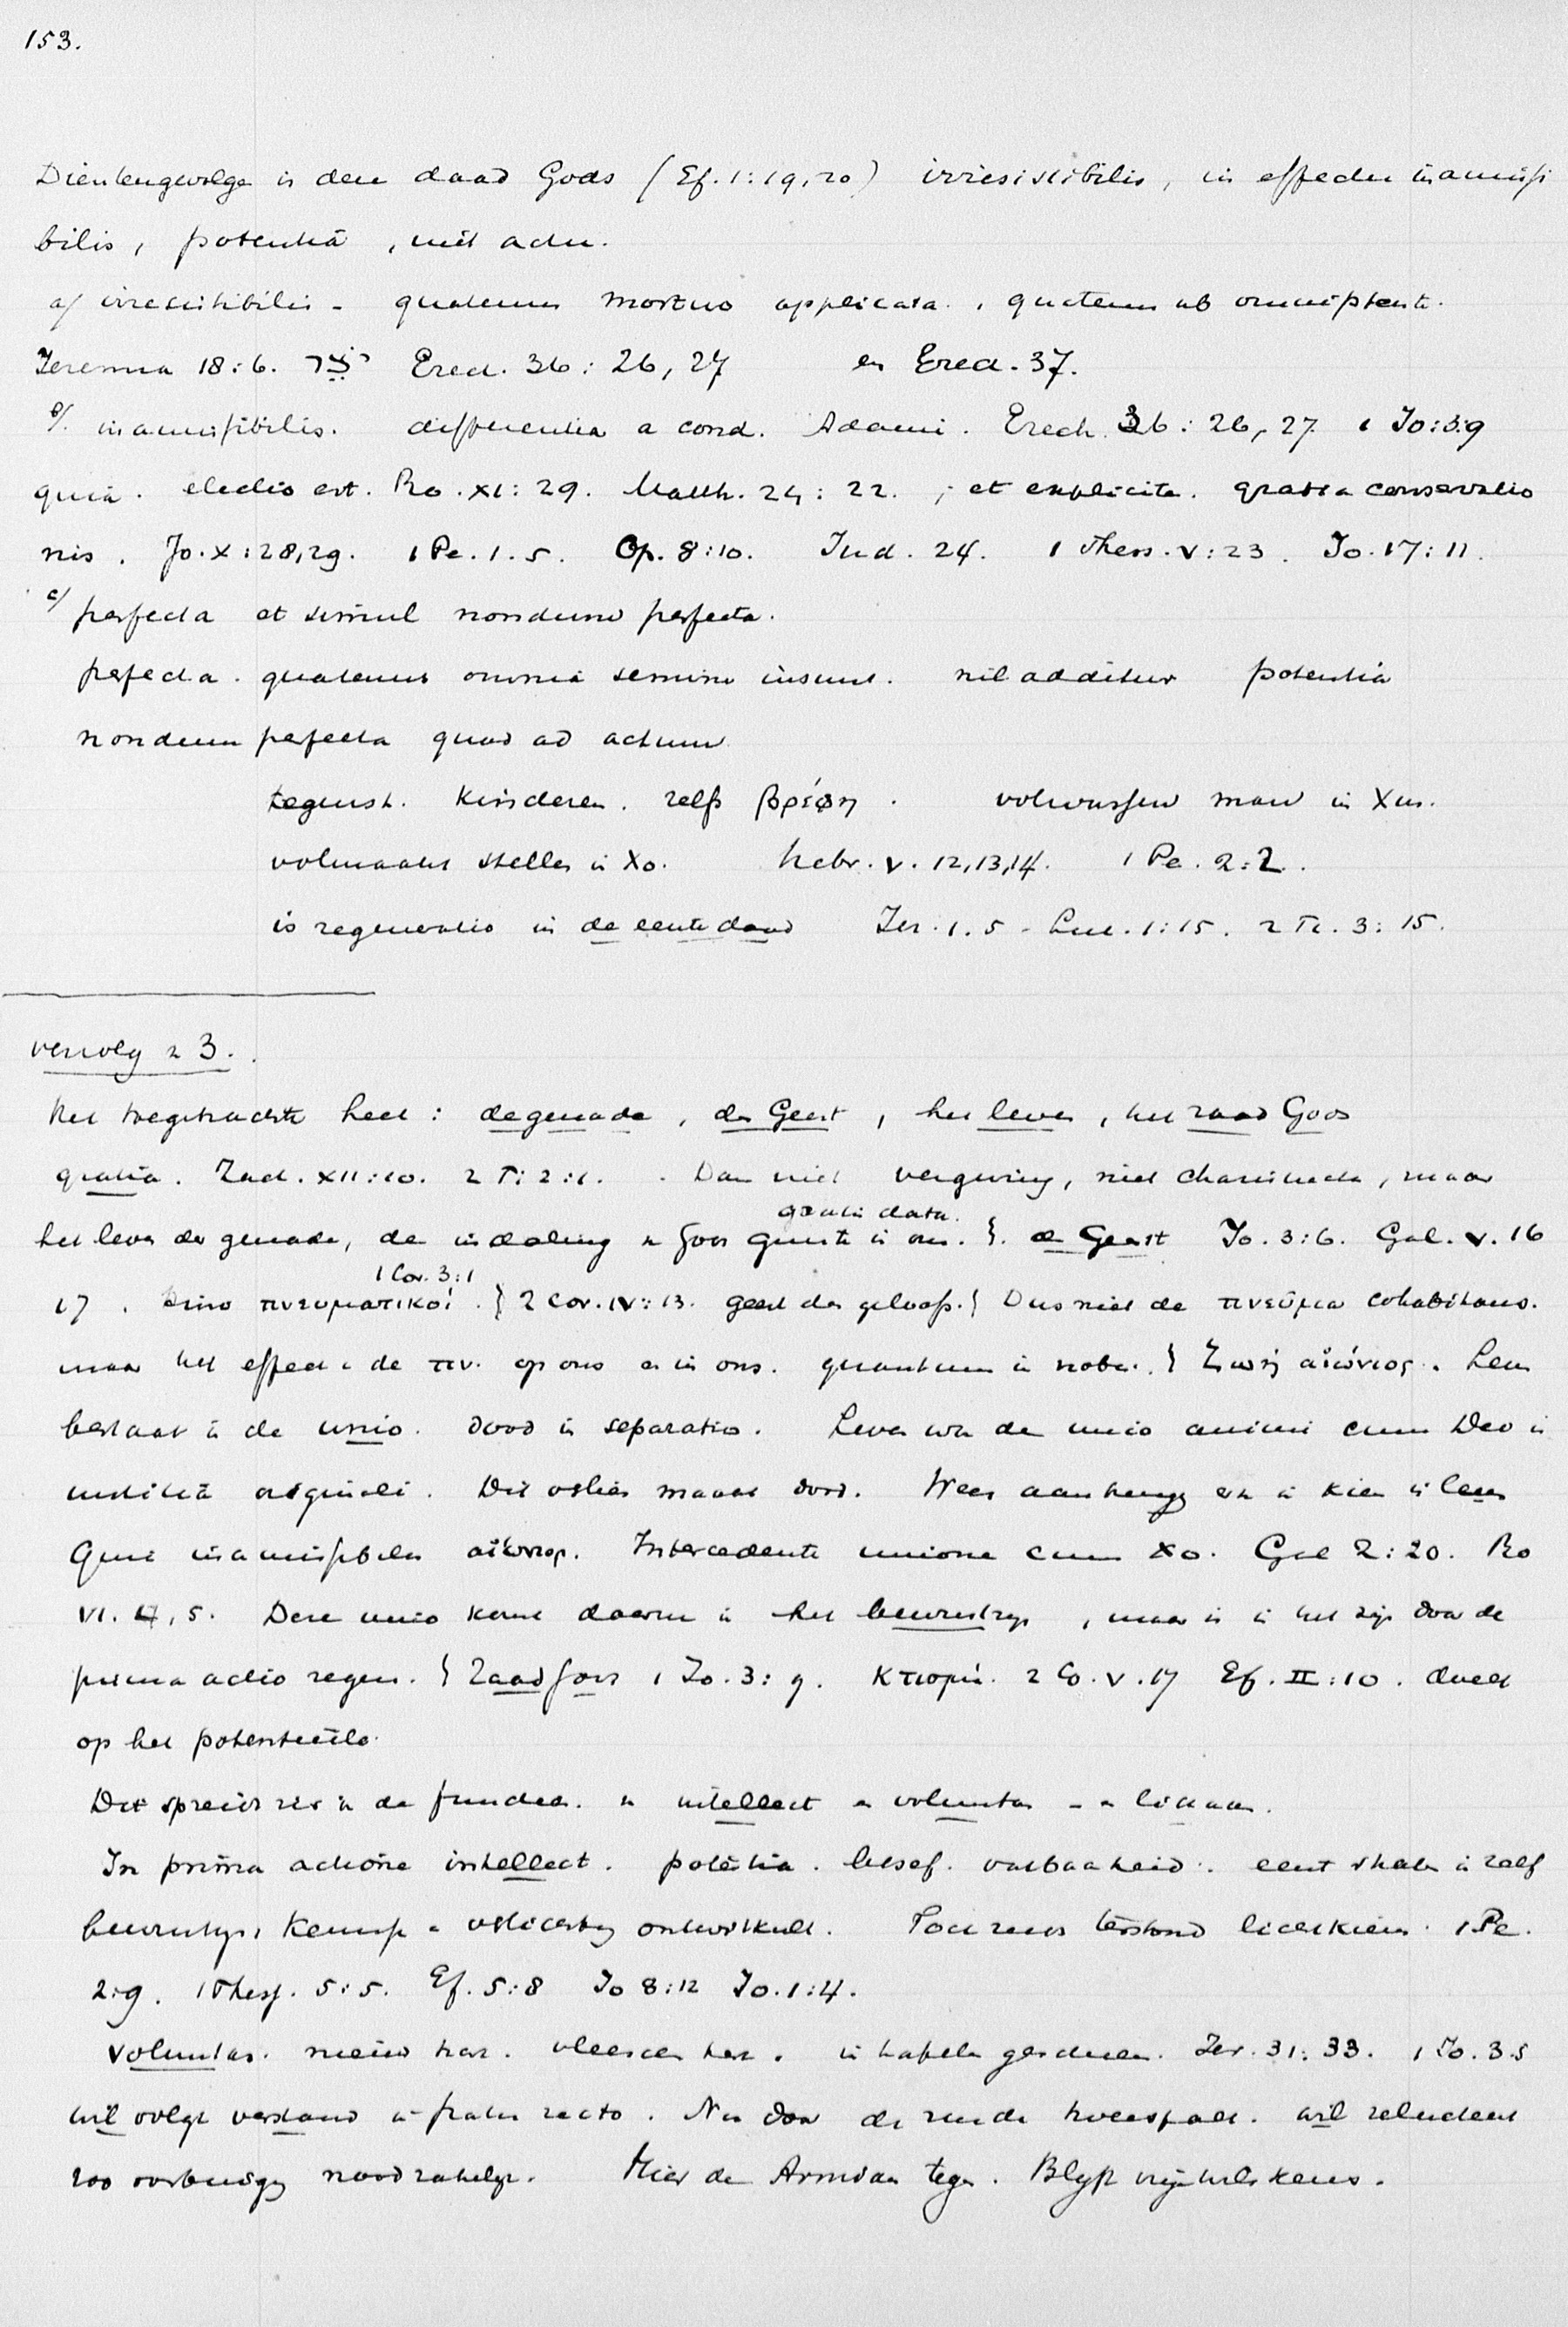 153.
Dientengevolge is deze daad Gods (Ef. 1:19,20) irresistibilis, in effectu inamissi
bilis, potentiâ, niet actu.
a/ irresistibilis - quatenus mortuo applicata, quatenus ab omnipotente.
Jeremia 18:6. יצר Ezech. 36:26,27 en Ezech. 37.
b/. inamissibilis. differentia a cond. Adami. Ezech. 36:26,27 1 Jo:3:9
quia. electio est. Ro. XI:29. Matth. 24:22. ; et explicite. gratia conservatio
nis. Jo. X:28,29. 1 Pe. 1.5. Op. 8:10. Jud. 24. 1 Thess. V:23. Jo. 17:11.
c/ perfecta et simul nondum perfecta.
perfecta. quatenus omnia semine insunt. nil additur potentiâ
nondum perfecta quod ad actum
tegenst. kinderen. zelfs βρέφη. volwassen man in Xus.
volmaakt stellen in Xo. Hebr. V. 12,13,14. 1 Pe. 2:2.
is regeneratio in de eerste daad Jer. 1.5 - Luc. 1:15. 2 Ti. 3:15.
vervolg 23.
Het toegebrachte heet: de genade, de Geest, het leven, het zaad Gods
gratia. Zach. XII:10. 2 Ti 2:1. Dan niet vergeving, niet charismata, maar
gratis data.
het leven der genade, de indaling v Gods gunste in ons. }. de Geest Jo. 3:6. Gal. V. 16
1 Cor. 3:1
17. πνευματικοί. } 2 Cor. IV:13. geest des geloofs. } Dus niet de πνεῦμα cohabitans.
maar het effect v de πν. op ons en in ons. quantum in nobis. } Ζωὴ αἰώνιος. Leven
bestaat in de unio. dood in separatio. Leven was de unio animi cum Deo in
justitiâ originali. Dit verlies maakt dood. Weer aanhang en in kiem is leven
Quia inamissibilis αἰώνιος. Intercedente unione cum Xo. Gal 2:20. Ro
VI. 4,5. Deze unio komt daarna in het bewustzijn, maar is in het zijn door de
prima actio regen. } Zaad Gods 1 Jo. 3:9. κτισμα. 2 Co. V. 17 Ef. II:10. duidt
op het potentieële.
Dit spreidt zich in de functies v intellect en voluntas - en lichaam.
In prima actione intellect. potentia. besef. vatbaarheid. eerst straks in zelf
bewustzijn, kennis en verlichting ontwikkelt. Toch reeds terstond lichtkiem. 1 Pe.
2:9. 1 Thess. 5:5. Ef. 5:8 Jo 8:12 Jo. 1:4.
voluntas. nieuw hart. vleeschen hart. in tafelen geschreven. Jer. 31:33. 1 Jo. 3.5
wil volgt verstand in statu recto. Nu door de zonde tweespalt. wil reluctent
zoo ombuiging noodzakelijk. Hier de Arminianen tegen. Blijft vrije wilskeus.